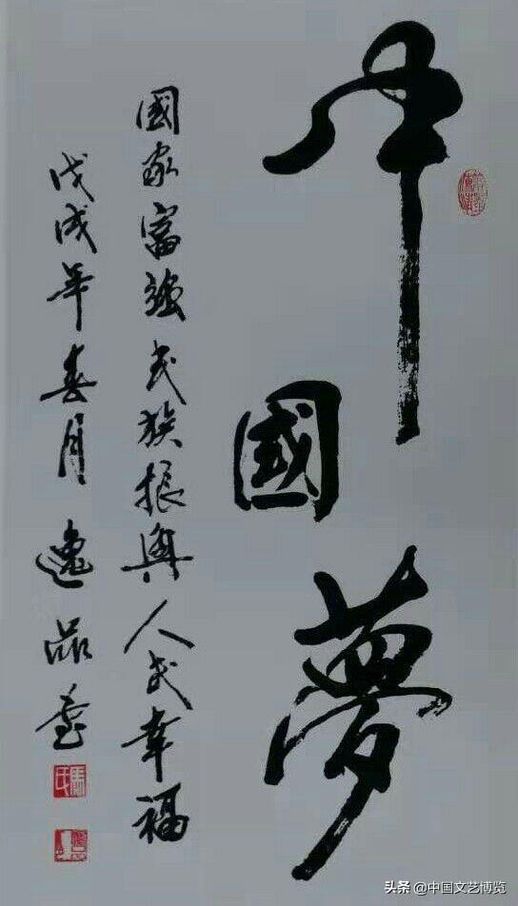 中國夢
國家富強民族振興人民幸福
戊戌年春月逸品書
头条 @中国文艺博览